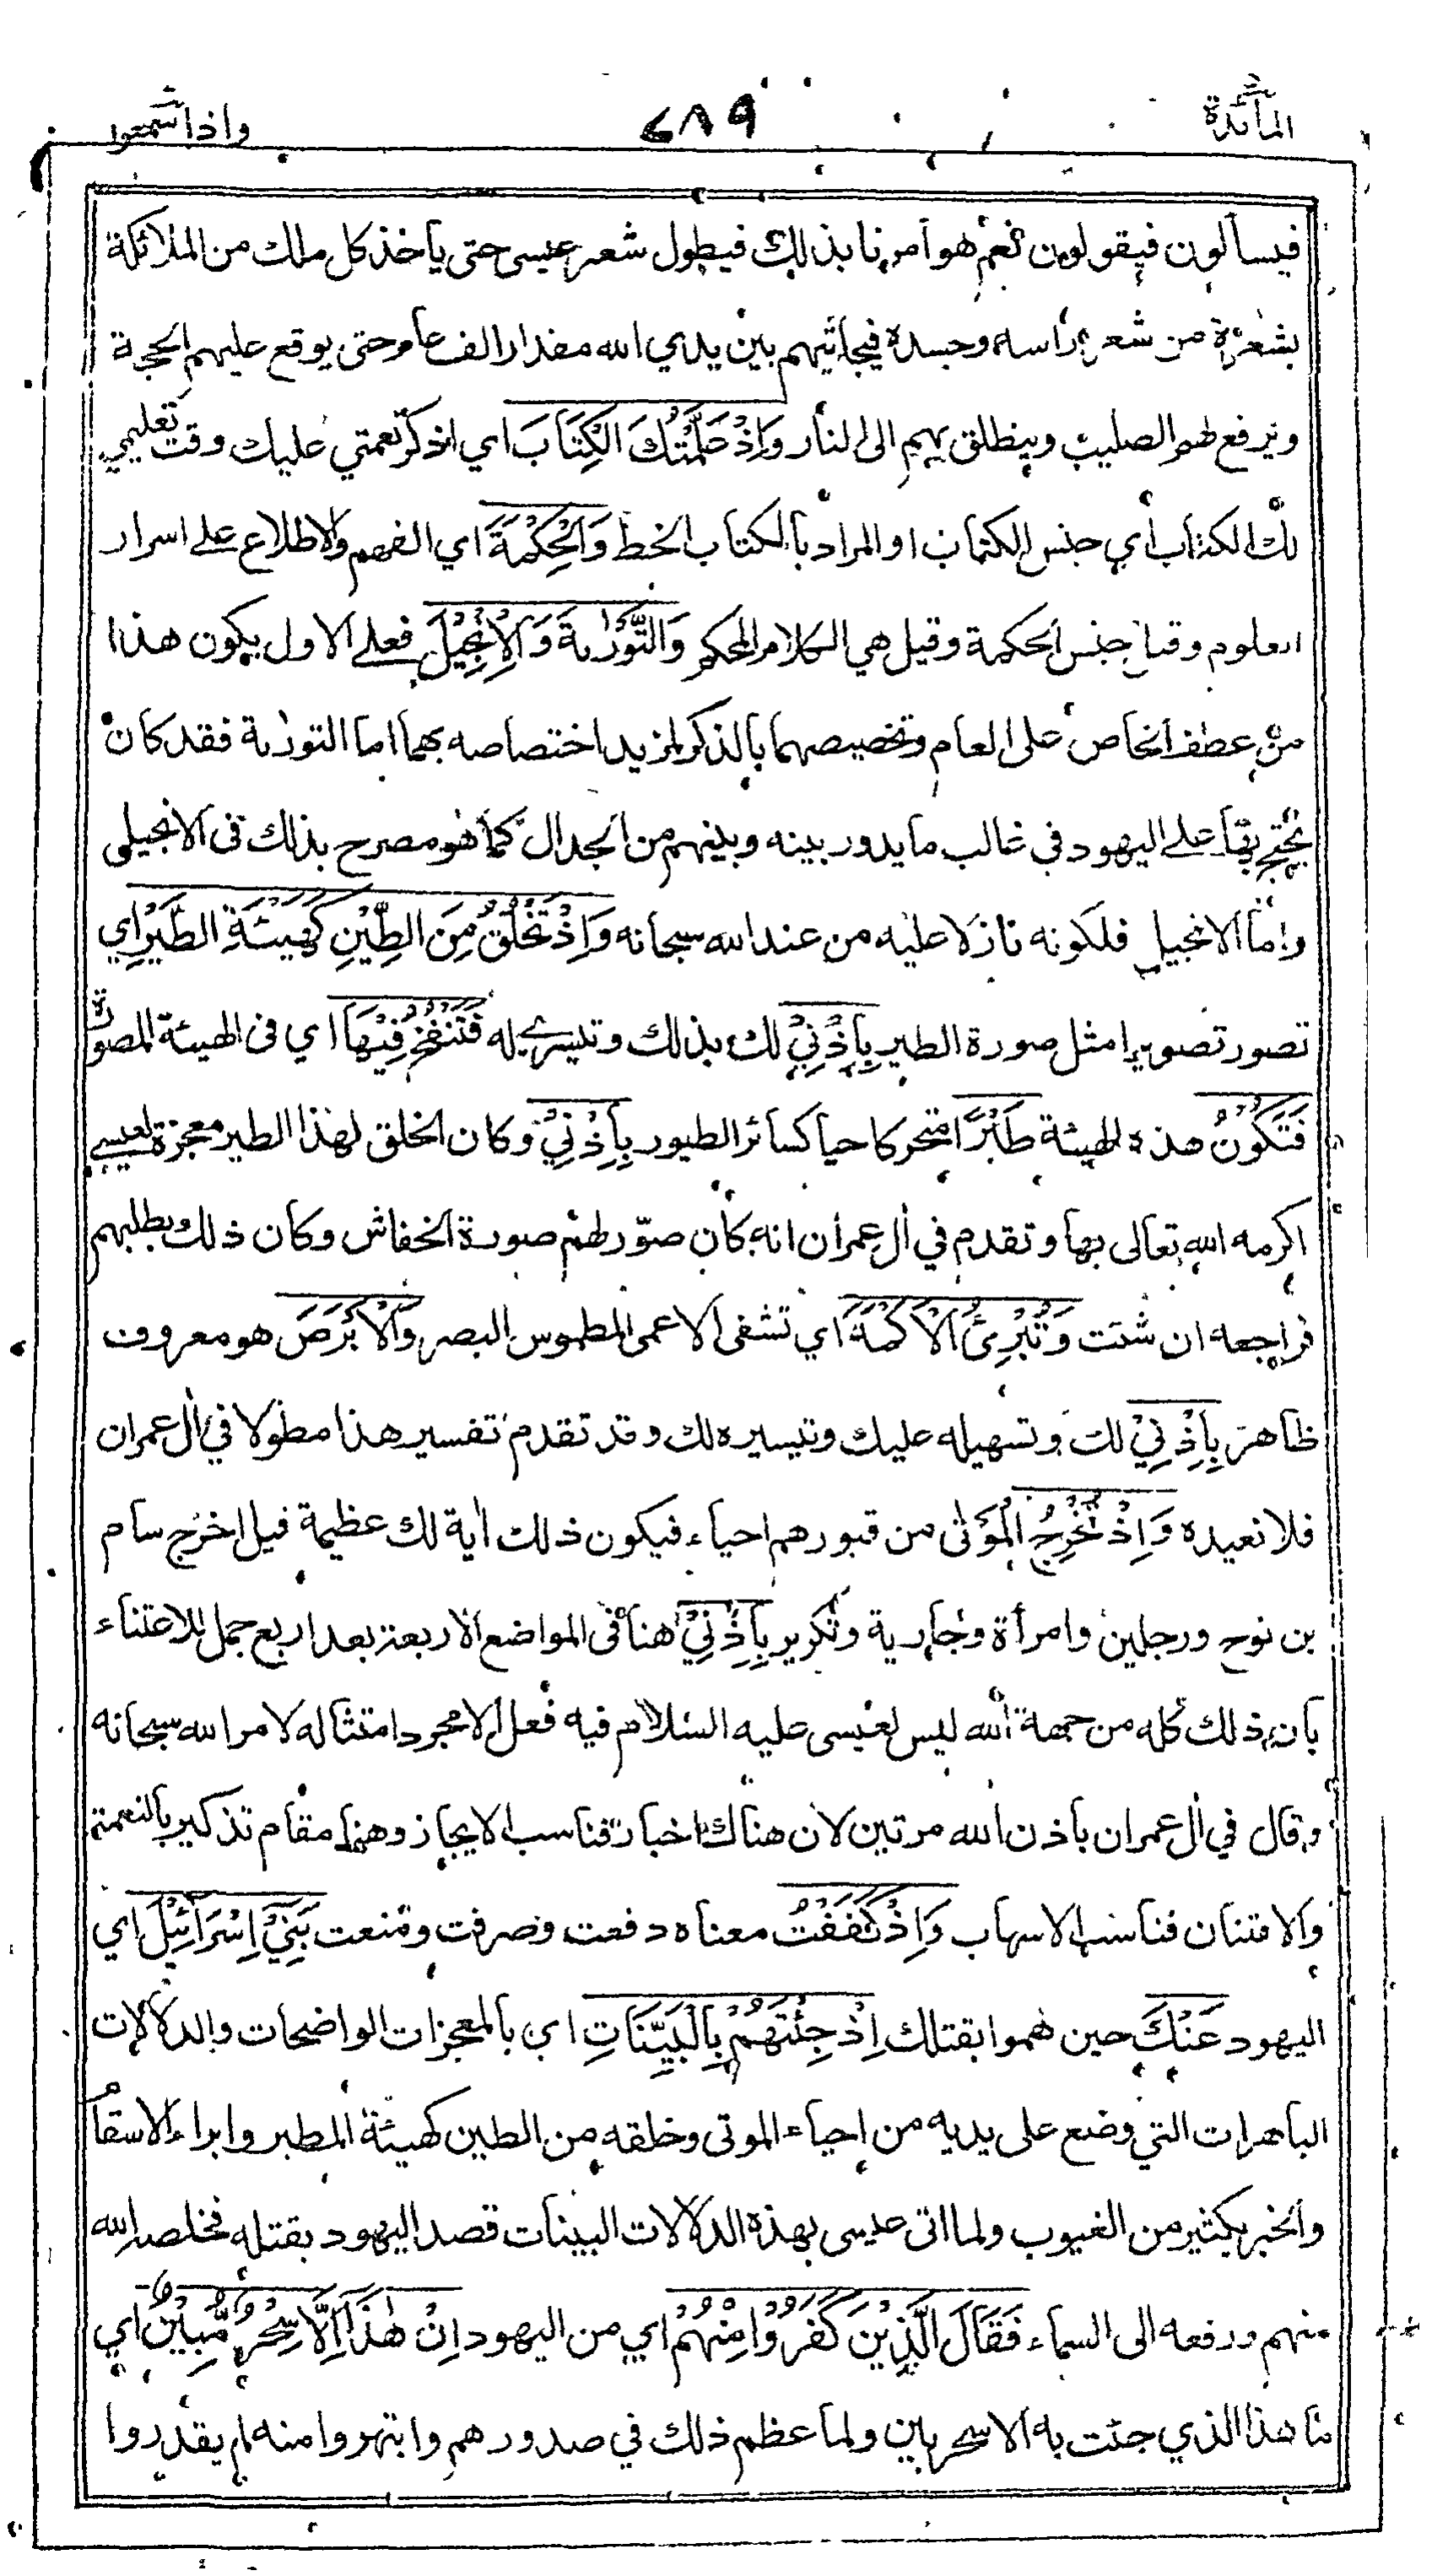 المائدة ٦٨٩ واذا سمعوا
فيسألون فيقولون نعم هو أمرنا بذلك فيطول شعر عيسى حتى يأخذ كل ملك من الملائكة
بشعرة من شعر رأسه وجسده فيجاثيهم بين يدي الله مقدار الف عام وحتى يوقع عليهم الحجة
ويرفع لهم الصليب وينطلق بهم الى النار وَاِذْ عَلَّمْتُكَ الْكِتَابَ اي اذكر نعمتي عليك وقت تعليمي
لك الكتاب أي جنس الكتاب او المراد بالكتاب الخط وَالْحِكْمَةَ اي الفهم والاطلاع على اسرار
العلوم وقيل جنس الحكمة وقيل هي الكلام المحكم وَالتَّوْرٰىةَ وَالْاِنْجِيْلَ فعلى الاول يكون هذا
من عطف الخاص على العام وتخصيصهما بالذكر لمزيد اختصاصه بهما اما التورٰىة فقد كان
يحتج بها على اليهود في غالب ما يدور بينه وبينهم من الجدال كما هو مصرح بذلك في الانجيل
واما الانجيل فلكونه نازلا عليه من عند الله سبحانه وَاِذْ تَخْلُقُ مِنَ الطِّيْنِ كَهَيْئَةِ الطَّيْرِ اي
تصور تصويرا مثل صورة الطير بِاِذْنِيْ لك بذلك وتيسيري له فَتَنْفُخُ فِيْهَا اي في الهيئة المصورة
فَتَكُوْنُ هذه الهيئة طَيْرًا متحركا حيا كسائر الطيور بِاِذْنِيْ وكان الخلق لهذا الطير معجزة لعيسى
اكرمه الله تعالى بها وتقدم في اٰل عمران انه كان صوّر لهم صورة الخفاش وكان ذلك بطلبهم
فراجعه ان شئت وَتُبْرِئُ الْاَكْمَهَ اي تشفى الاعمى المطموس البصر وَالْاَبْرَصَ هو معروف
ظاهر بِاِذْنِيْ لك وتسهيله عليك وتيسيره لك وقد تقدم تفسير هذا مطولا في اٰل عمران
فلا نعيده وَاِذْ تُخْرِجُ الْمَوْتٰى من قبورهم احياء فيكون ذلك اٰية لك عظيمة قيل اخرج سام
بن نوح ورجلين وامرأة وجارية وتكرير بِاِذْنِيْ هنا في المواضع الاربعة بعد اربع جمل للاعتناء
بان ذلك كله من جهة الله ليس لعيسى عليه السلام فيه فعل الا مجرد امتثاله لامر الله سبحانه
وقال في اٰل عمران باذن الله مرتين لان هناك اخبار فناسب الايجاز وهنا مقام تذكير بالنعمة
والامتنان فناسب الاسهاب وَاِذْ كَفَفْتُ معناه دفعت وصرفت ومنعت بَنِيْ اِسْرَآئِيْلَ اي
اليهود عَنْكَ حين هموا بقتلك اِذْ جِئْتَهُمْ بِالْبَيِّنَاتِ اي بالمعجزات الواضحات والدلالات
الباهرات التي وضع على يديه من احياء الموتى وخلقه من الطين كهيئة الطير وابراء الاسقام
والخبر بكثير من الغيوب ولما اتى عيسى بهذه الدلالات البينات قصد اليهود بقتله فخلصه الله
منهم ورفعه الى السماء فَقَالَ الَّذِيْنَ كَفَرُوْا مِنْهُمْ اي من اليهود اِنْ هٰذَآ اِلَّا سِحْرٌ مُّبِيْنٌ اي
ما هذا الذي جئت به الا سحر بين ولما عظم ذلك في صدورهم وابتهروا منه لم يقدروا